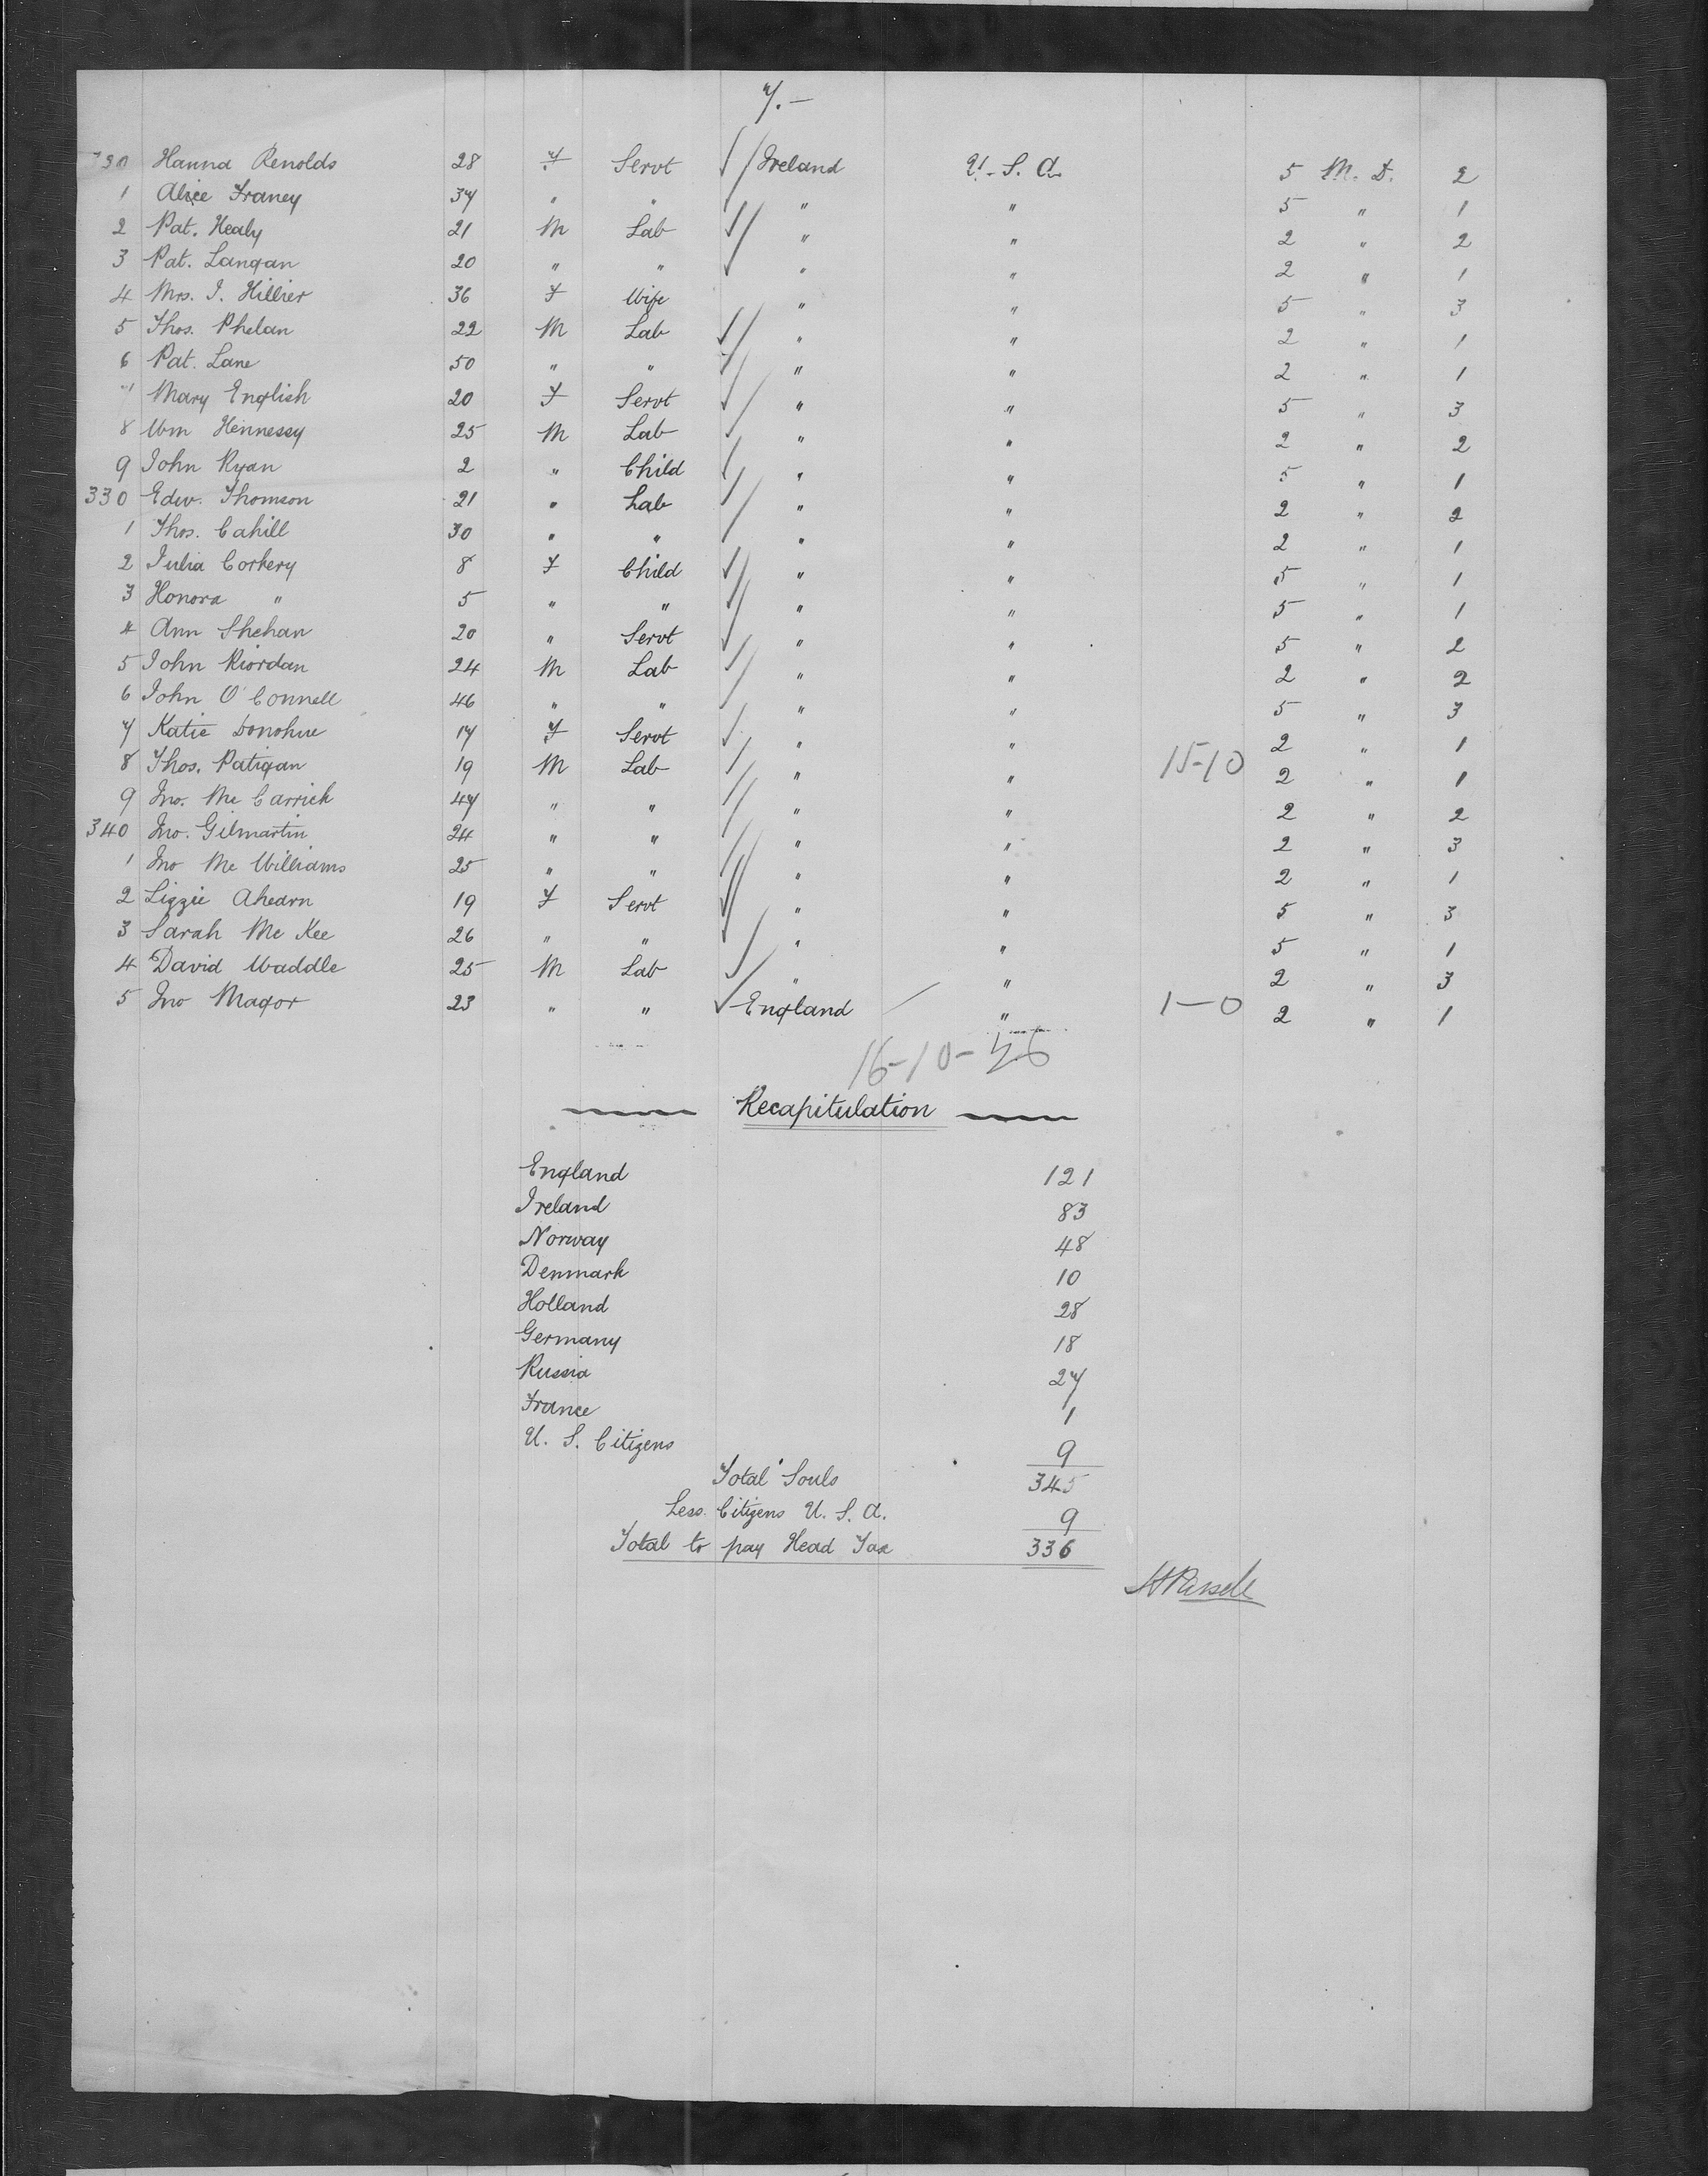 7.—
320 Hanna Renolds 28 F Servt Ireland U.S.A. 5 M.D. 2
1 Alice Franey 37 " " " " 5 " 1
2 Pat. Healy 21 M Lab " " 2 " 2
3 Pat. Langan 20 " " " " 2 " 1
4 Mrs. J. Hillier 36 F Wife " " 5 " 3
5 Thos. Phelan 22 M Lab " " 2 " 1
6 Pat. Lane 50 " " " " 2 " 1
7 Mary English 20 F Servt " " 5 " 3
8 Wm Hennessy 25 M Lab " " 2 " 2
9 John Ryan 2 " Child " " 5 " 1
330 Edw. Thomson 21 " Lab " " 2 " 2
1 Thos. Cahill 30 " " " " 2 " 1
2 Julia Corkery 8 F Child " " 5 " 1
3 Honora " 5 " " " " 5 " 1
4 Ann Shehan 20 " Servt " " 5 " 2
5 John Riordan 24 M Lab " " 2 " 2
6 John O'Connell 46 " " " " 5 " 3
7 Katie Donohue 17 F Servt " " 2 " 1
8 Thos. Patigan 19 M Lab " " 15-10 2 " 1
9 Jno. Mc Carrick 47 " " " " 2 " 2
340 Jno. Gilmartin 24 " " " " 2 " 3
1 Jno Mc Williams 25 " " " " 2 " 1
2 Lizzie Ahearn 19 F Servt " " 5 " 3
3 Sarah Mc Kee 26 " " " " 5 " 1
4 David Waddle 25 M Lab " " 2 " 3
5 Jno Magor 23 " " England " 1-0 2 " 1
16-10-26
Recapitulation
England 121
Ireland 83
Norway 48
Denmark 10
Holland 28
Germany 18
Russia 27
France 1
U. S. Citizens 9
Total Souls 345
Less. Citizens U. S. A. 9
Total to pay Head Tax 336